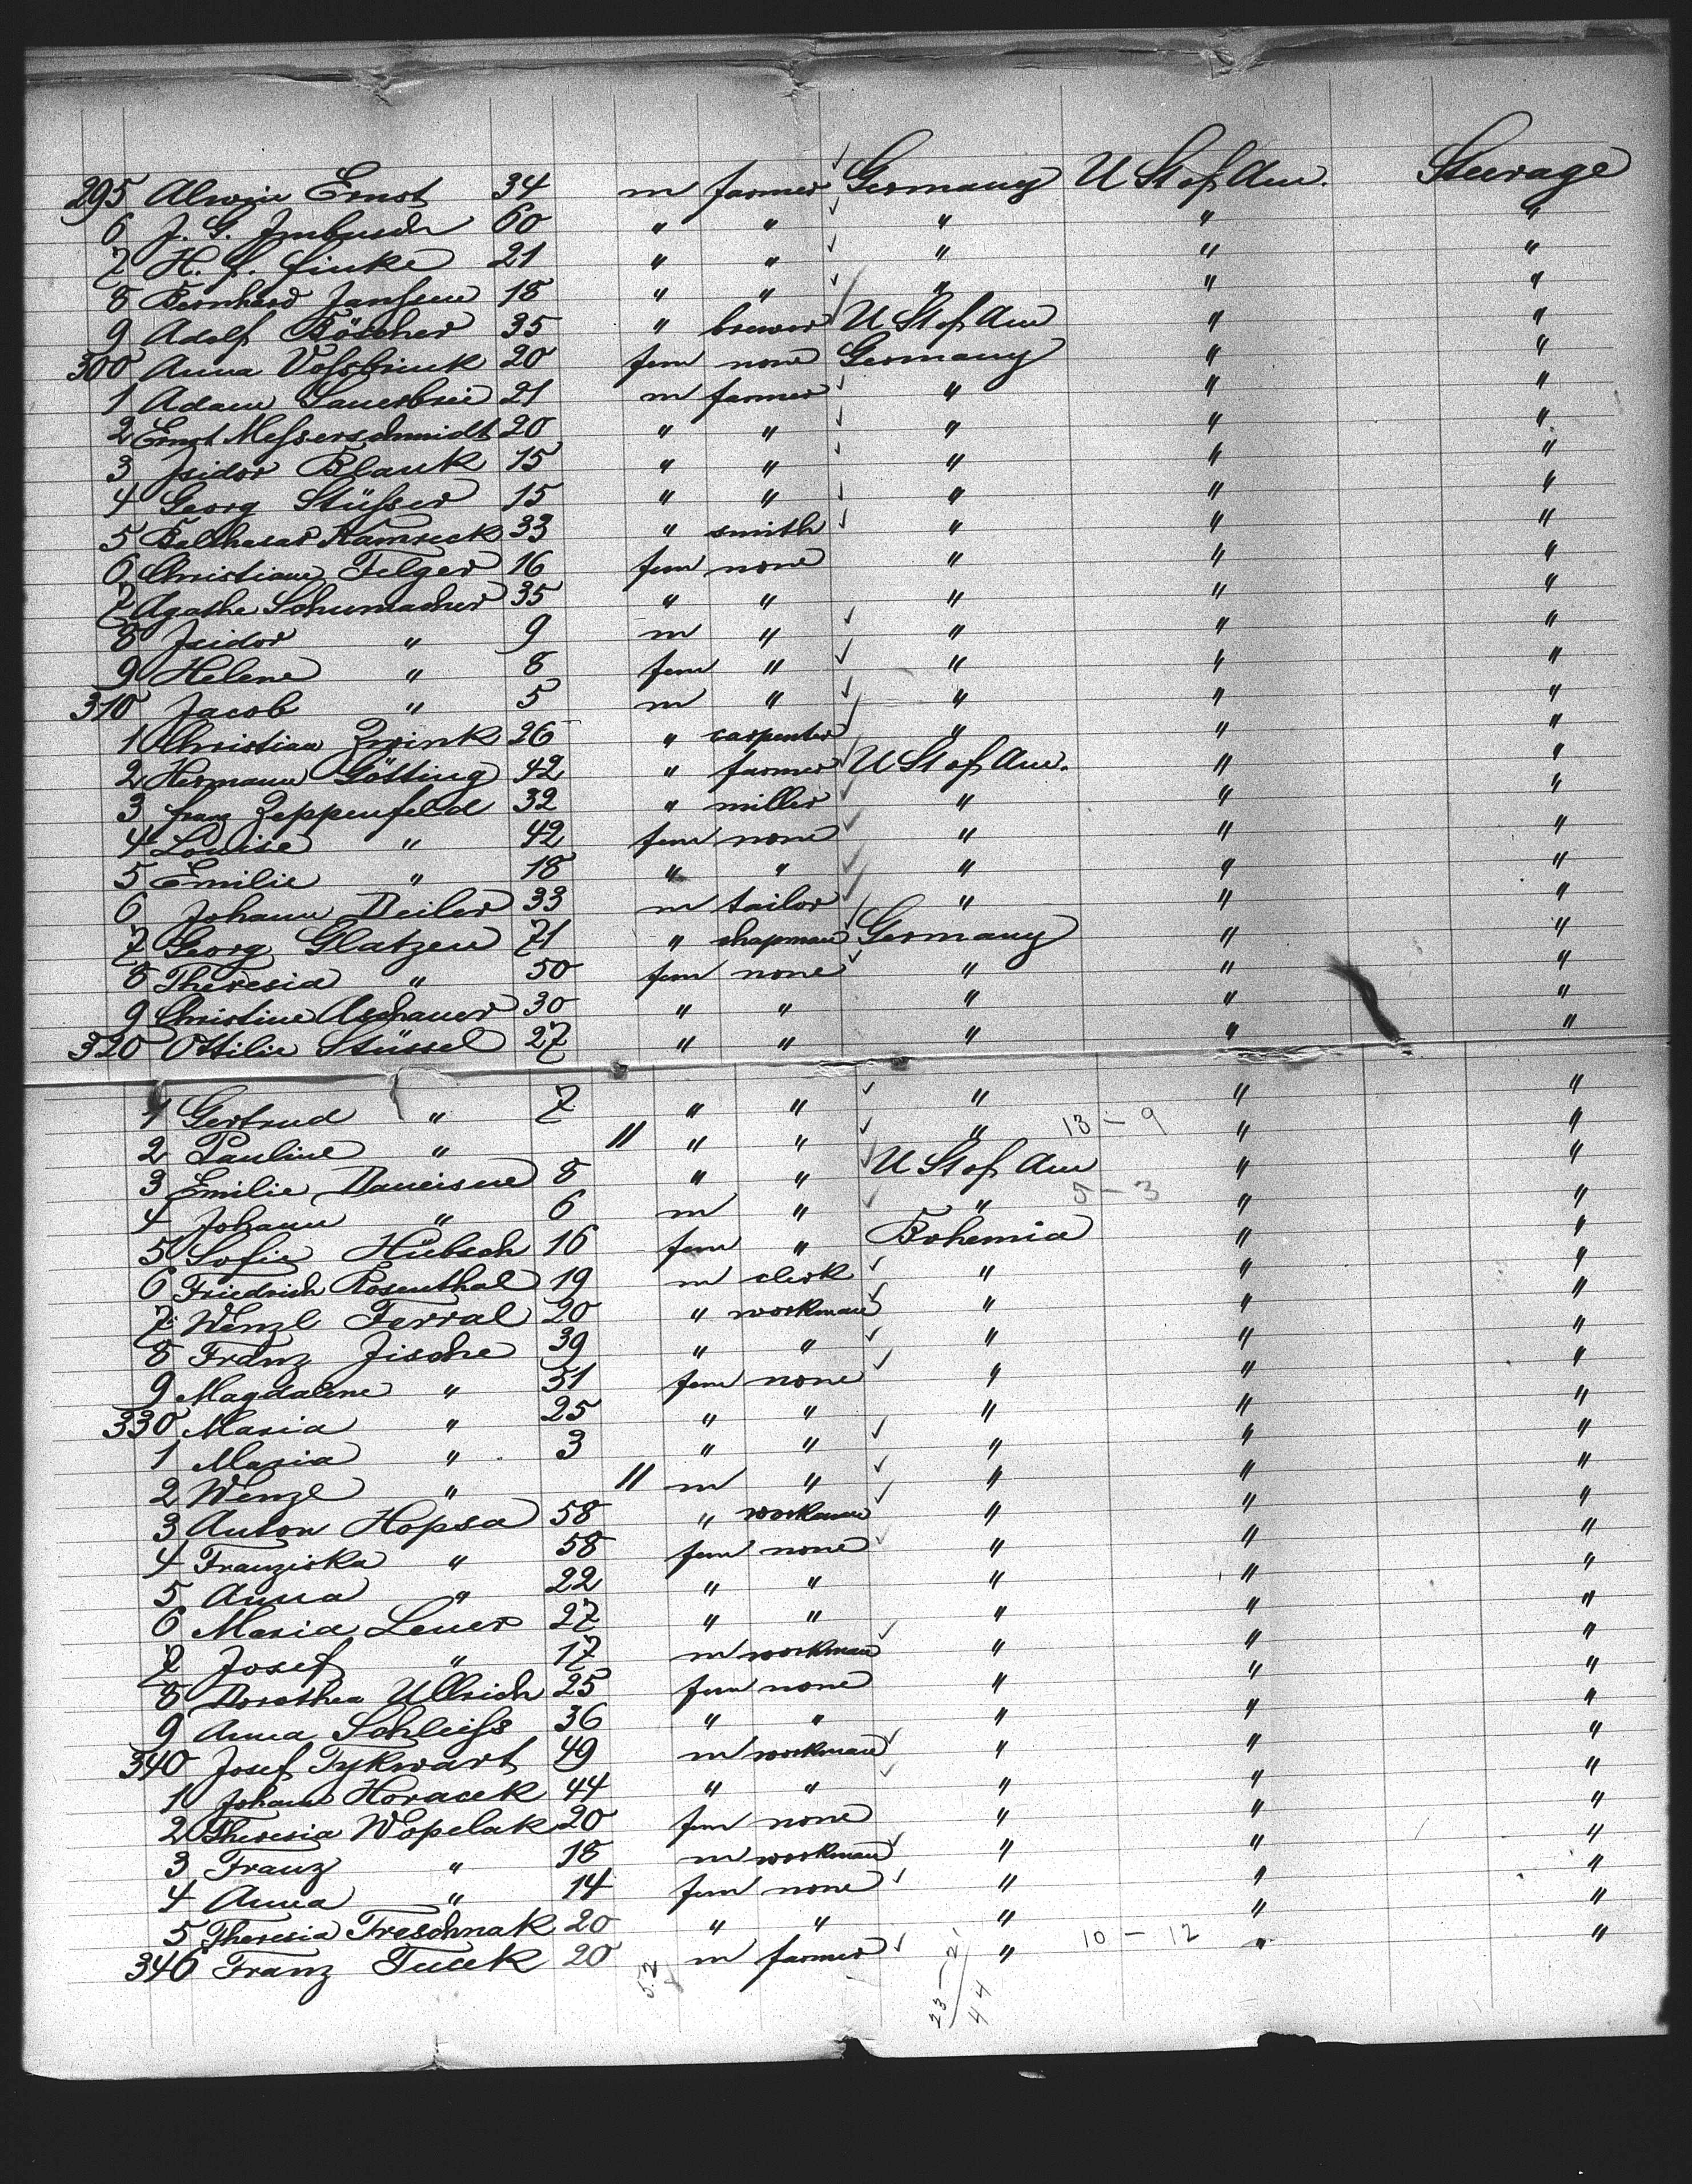 295 Alwin Ernst 34 m farmer Germany U St of Am. Steerage
6 J. G. Imbusch 60 " " " " "
7 H. f. finke 21 " " " " "
8 Bernhard Janssen 18 " " " " "
9 Adolf Böscher 35 " brewer U St of Am " "
300 Anna Vossbrink 20 fem none Germany " "
1 Adam Sauerbrei 21 m farmer " " "
2 Ernst Messerschmidt 20 " " " " "
3 Isidor Blank 15 " " " " "
4 Georg Stüsser 15 " " " " "
5 Balthasar Kamreck 33 " smith " " "
6 Christiane Felger 16 fem none " " "
7 Agathe Schumacher 35 " " " " "
8 Isidor " 9 m " " " "
9 Helene " 8 fem " " " "
310 Jacob " 5 m " " " "
1 Christian Zwink 26 " carpenter " " "
2 Hermann Götting 42 " farmer U St of Am. " "
3 franz Zeppenfeld 32 " miller " " "
4 Louise " 42 fem none " " "
5 Emilie " 18 " " " " "
6 Johann Deiler 33 m tailor " " "
7 Georg Glatzen 71 " chapman Germany " "
8 Theresia " 50 fem none " " "
9 Christine Aschauer 30 " " " " "
320 Ottilie Stüssel 27 " " " " "
1 Gertrud " 7 " " " " "
2 Pauline " 11 " " " 13 - 9 " "
3 Emilie 8 " " U St of Am " "
4 Johann " 6 m " " 5 - 3 " "
5 Sofie Hübsch 16 fem " Bohemia " "
6 Friedrich Rosenthal 19 m clerk " " "
7 Wenzl Ferral 20 " workman " " "
8 Franz Jische 39 " " " " "
9 Magdalene " 31 fem none " " "
330 Maria " 25 " " " " "
1 Maria " 3 " " " " "
2 Wenzl " 11 m " " " "
3 Anton Hopsa 58 " workman " " "
4 Franziska " 58 fem none " " "
5 Anna " 22 " " " " "
6 Maria Lener 27 " " " " "
7 Josef " 17 m workman " " "
8 Dorothea Ullrich 25 fem none " " "
9 Anna Schleiss 36 " " " " "
340 Josef Tykwart 49 m workman " " "
1 Johann Horacek 44 " " " " "
2 Theresia Wopelak 20 fem none " " "
3 Franz " 18 m workman " " "
4 Anna " 14 fem none " " "
5 Theresia Freschnak 20 " " " " "
346 Franz Tucek 20 m farmer " 10 - 12 " "
52 23 - 21
44